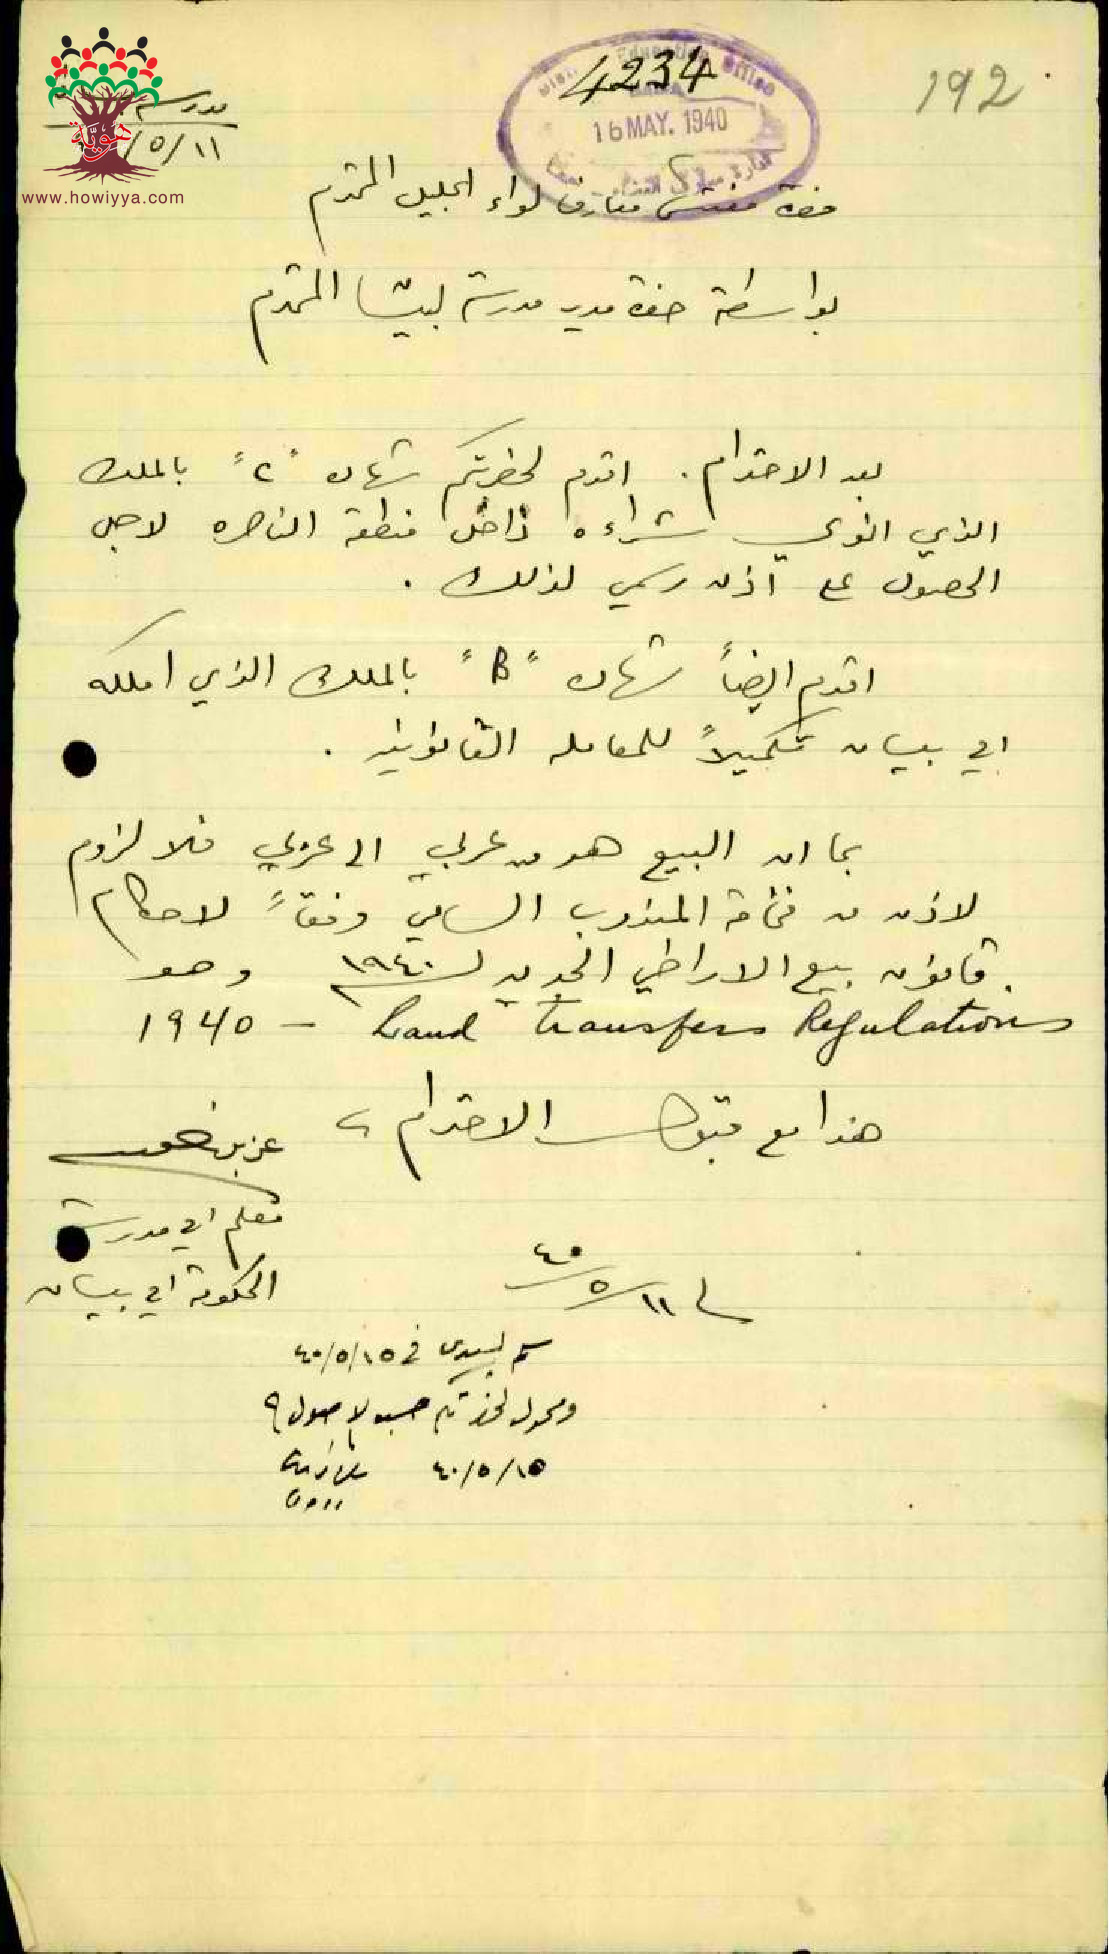 192
District Education Office
4234
16 MAY. 1940
هوية
www.howiyya.com
مدرسة
١١/٥/
حضرة مفتش معارف لواء الجليل المحترم
بواسطة حضرة مدير مدرسة بيسان المحترم
بعد الاحترام. اقدم لحضرتكم شهادة "C" بالملك
الذي انوي شراءه داخل منطقة الناصره لاجل
الحصول على اذن رسمي لذلك.
اقدم ايضاً شهادة "B" بالملك الذي املكه
في بيسان تكميلاً للمعامله القانونيه.
بما ان البيع هو من عربي الى عربي فلا لزوم
لاذن من فخامة المندوب السامي وفقاً لاحكام
قانون بيع الاراضي الجديد لسنة ١٩٤٠ وهو
Land Transfers Regulations – 1940
هذا مع قبول الاحترام،
معلم في مدرسة
الحكومة في بيسان
في ١١/٥/٤٠
في ١٥/٥/٤٠
ومحول لحضرتكم حسب الاصول
١٥/٥/٤٠